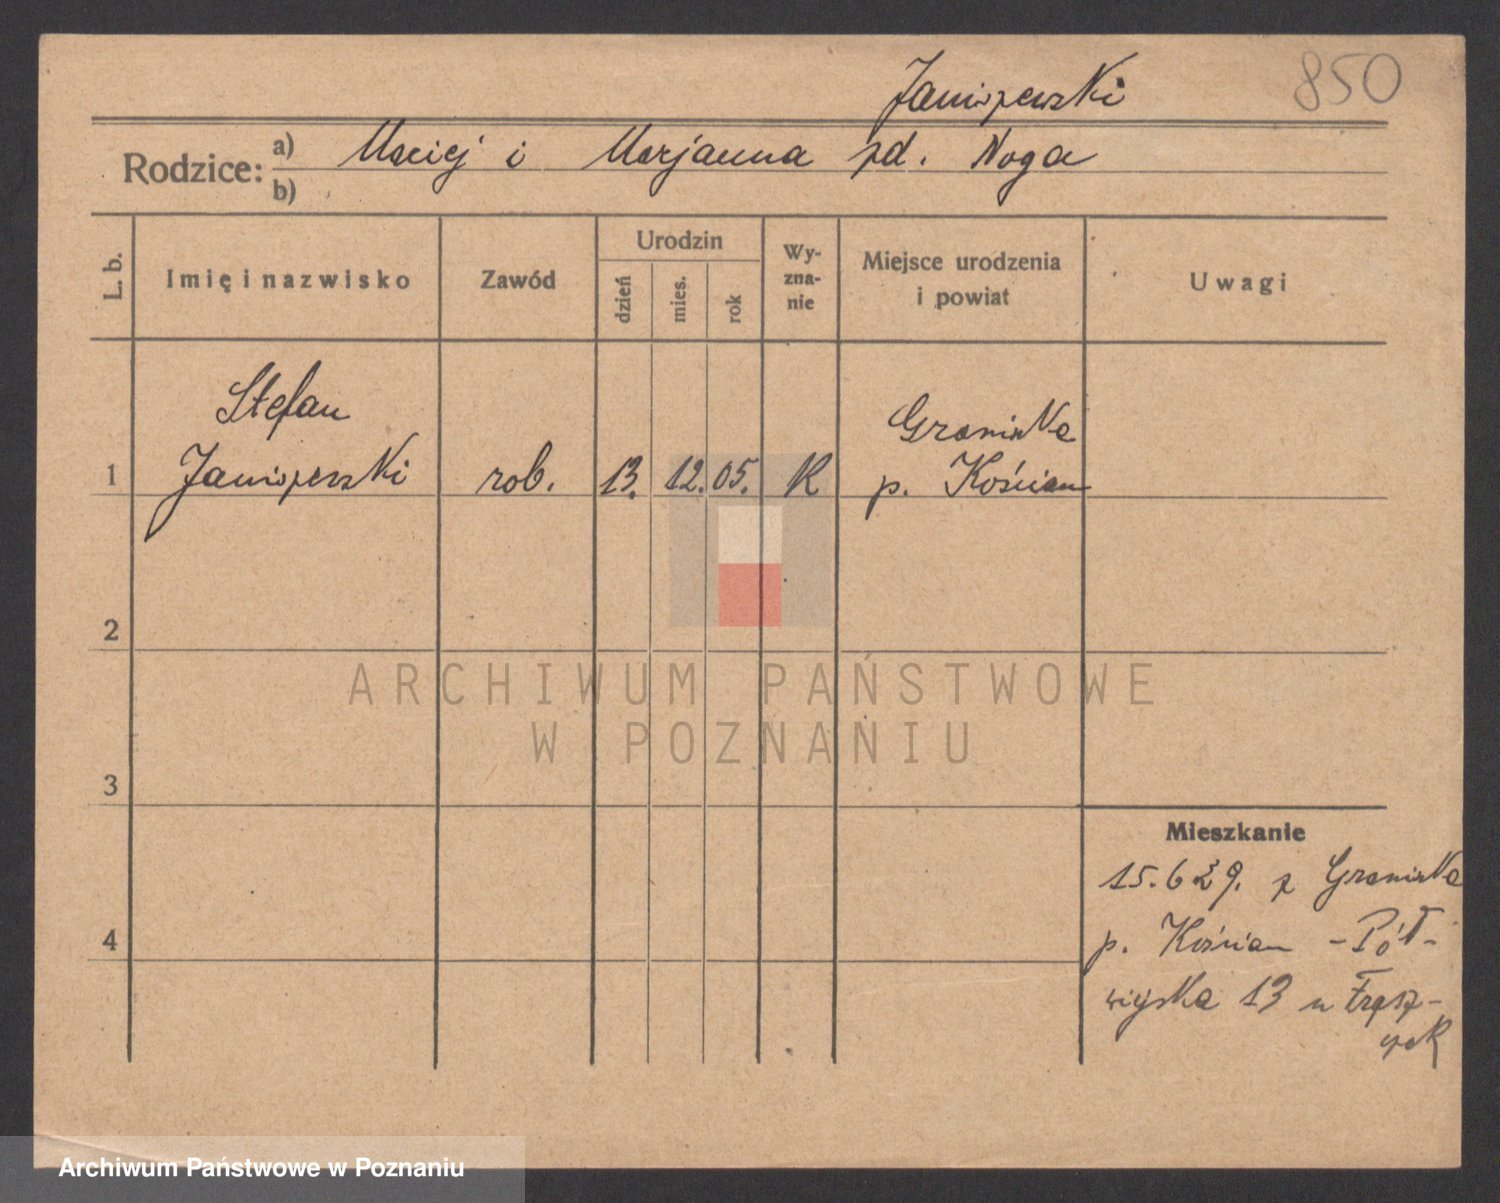 Janiszewski 850
Rodzice: a) Maciej i Marjanna zd. Noga
b)
L. b. Imię i nazwisko Zawód Urodzin dzień mies. rok Wy-zna-nie Miejsce urodzenia i powiat Uwagi
Stefan Granówko
1 Janiszewski rob. 13. 12. 05. K p. Kościan
2
3
4
Mieszkanie
15.6 29. z Granówka
p. Kościan - Pół-
wiejska 13 u
ARCHIWUM PAŃSTWOWE
W POZNANIU
Archiwum Państwowe w Poznaniu